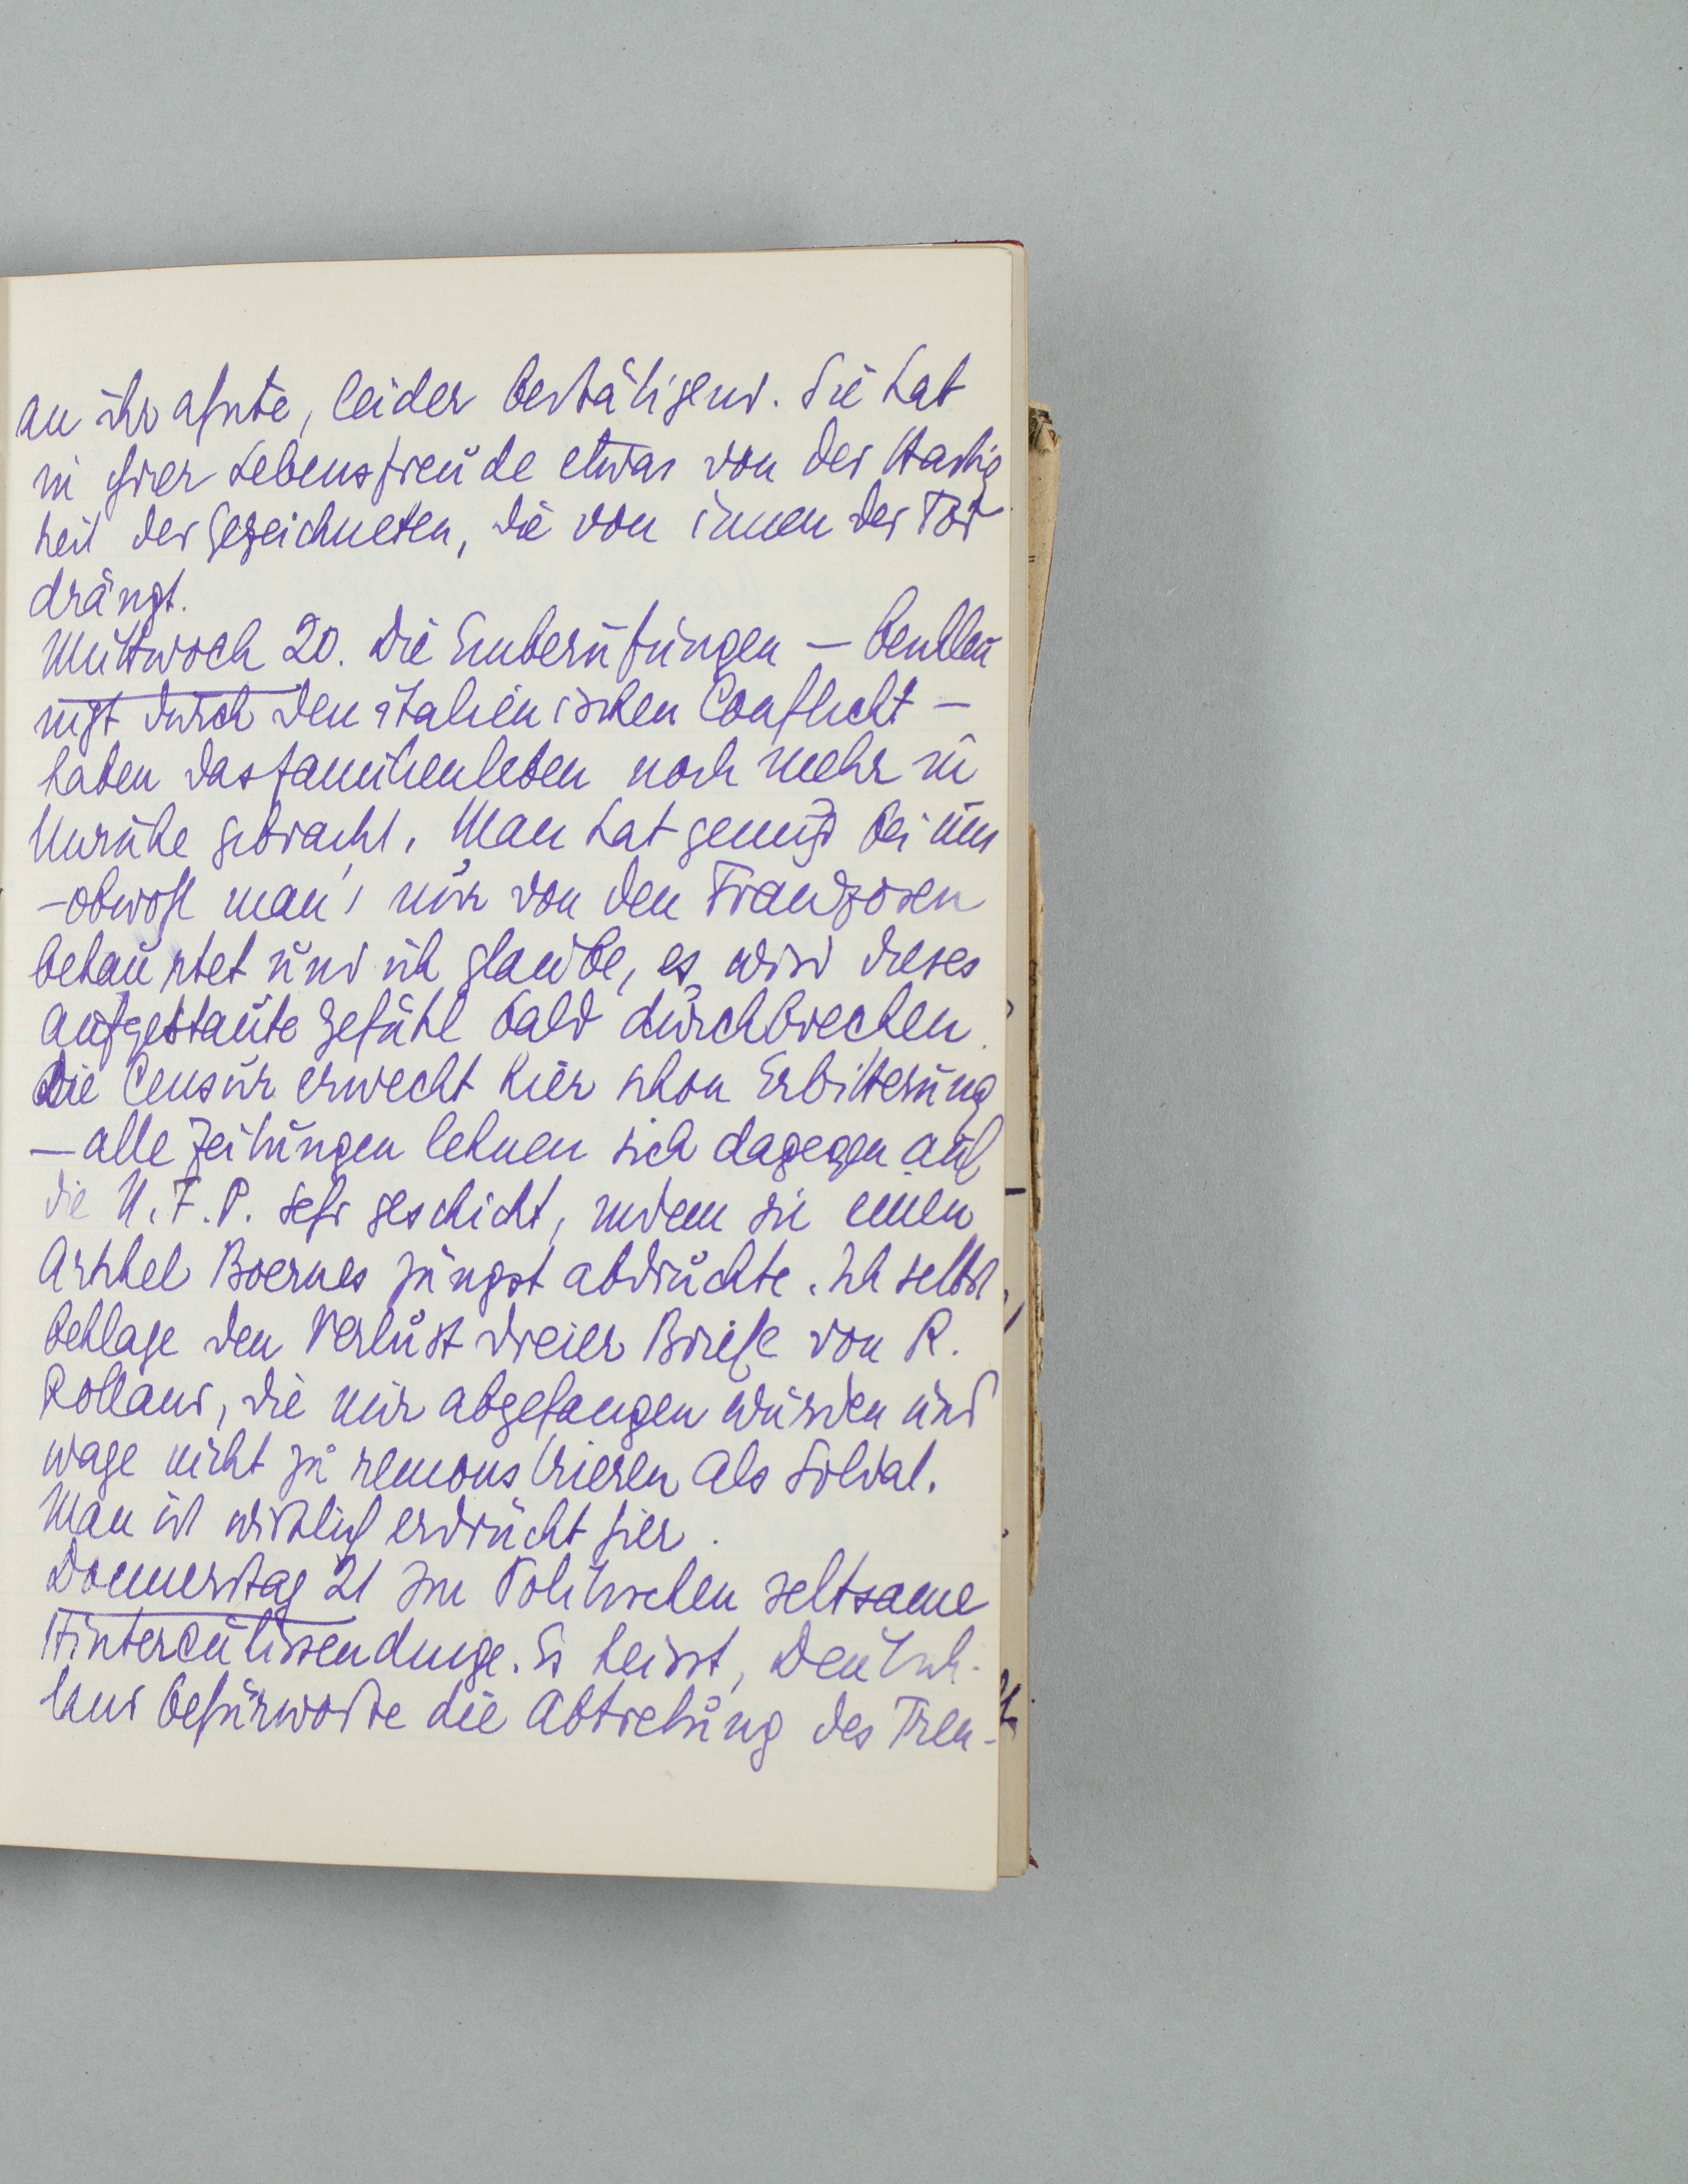 an ihr ahnte, leider bestätigend. Sie hat
in ihrer Lebensfreude etwas von der Hastig
keit der Gezeichneten, die von innen der Tod
drängt.
Mittwoch 20. Die Einberufungen – beschleu
nigt durch den italienischen Conflict –
haben das Familienleben noch mehr in
Unruhe gebracht. Man hat genug bei uns
– obwohl man's nur von den Franzosen
behauptet und ich glaube, es wird dieses
aufgestaute Gefühl bald durchbrechen.
Die Censur erweckt hier schon Erbitterung
– alle Zeitungen lehnen sich dagegen auf
die N. F. P. sehr geschickt, indem sie einen
Artikel Boernes jüngst abdruckte. Ich selbst
beklage den Verlust dreier Briefe von R.
Rolland, die mir abgefangen wurden und
wage nicht zu remonstrieren als Soldat.
Man ist wirklich erdrückt hier.
Donnerstag 21 Im Politischen seltsame
Hintercoulissendinge. Es heisst, Deutsch-
land befürworte die Abtretung des Tren-